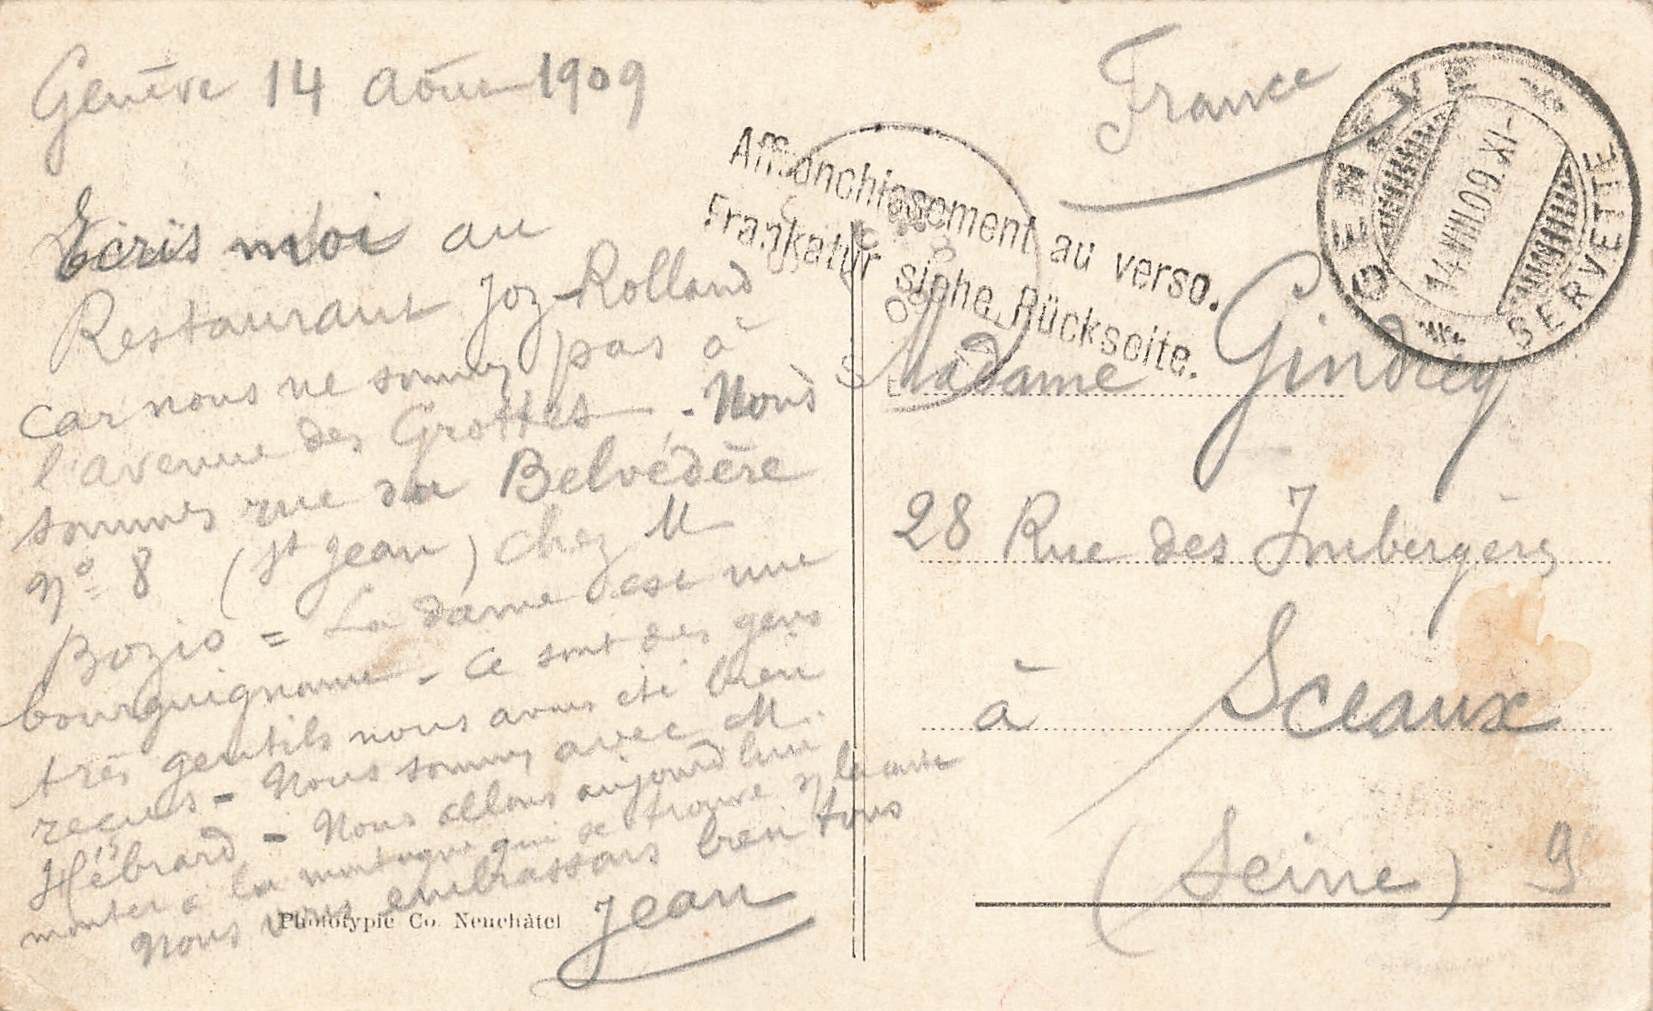 Genève 14 Août 1909
Ecris moi au
Restaurant Joz-Rolland
car nous ne sommes pas à
l'avenue des Grottes - Nous
sommes rue du Belvédère
Nº 8 (St Jean) chez M
Bozio = La dame est une
bourguignonne - Ce sont des gens
très gentils nous avons été bien
reçus - Nous sommes avec M.
Hébrard - Nous allons aujourd'hui
monter à la montagne qui se trouve la carte
Nous vous embrassons bien tous
Jean
Phototypie Co. Neuchâtel
France
Affranchissement au verso.
Frankatur siehe Rückseite.
GENEVE
14 VIII 09. XI-
SERVETTE
Madame Gindrey
28 Rue des Imbergères
à Sceaux
(Seine) 9